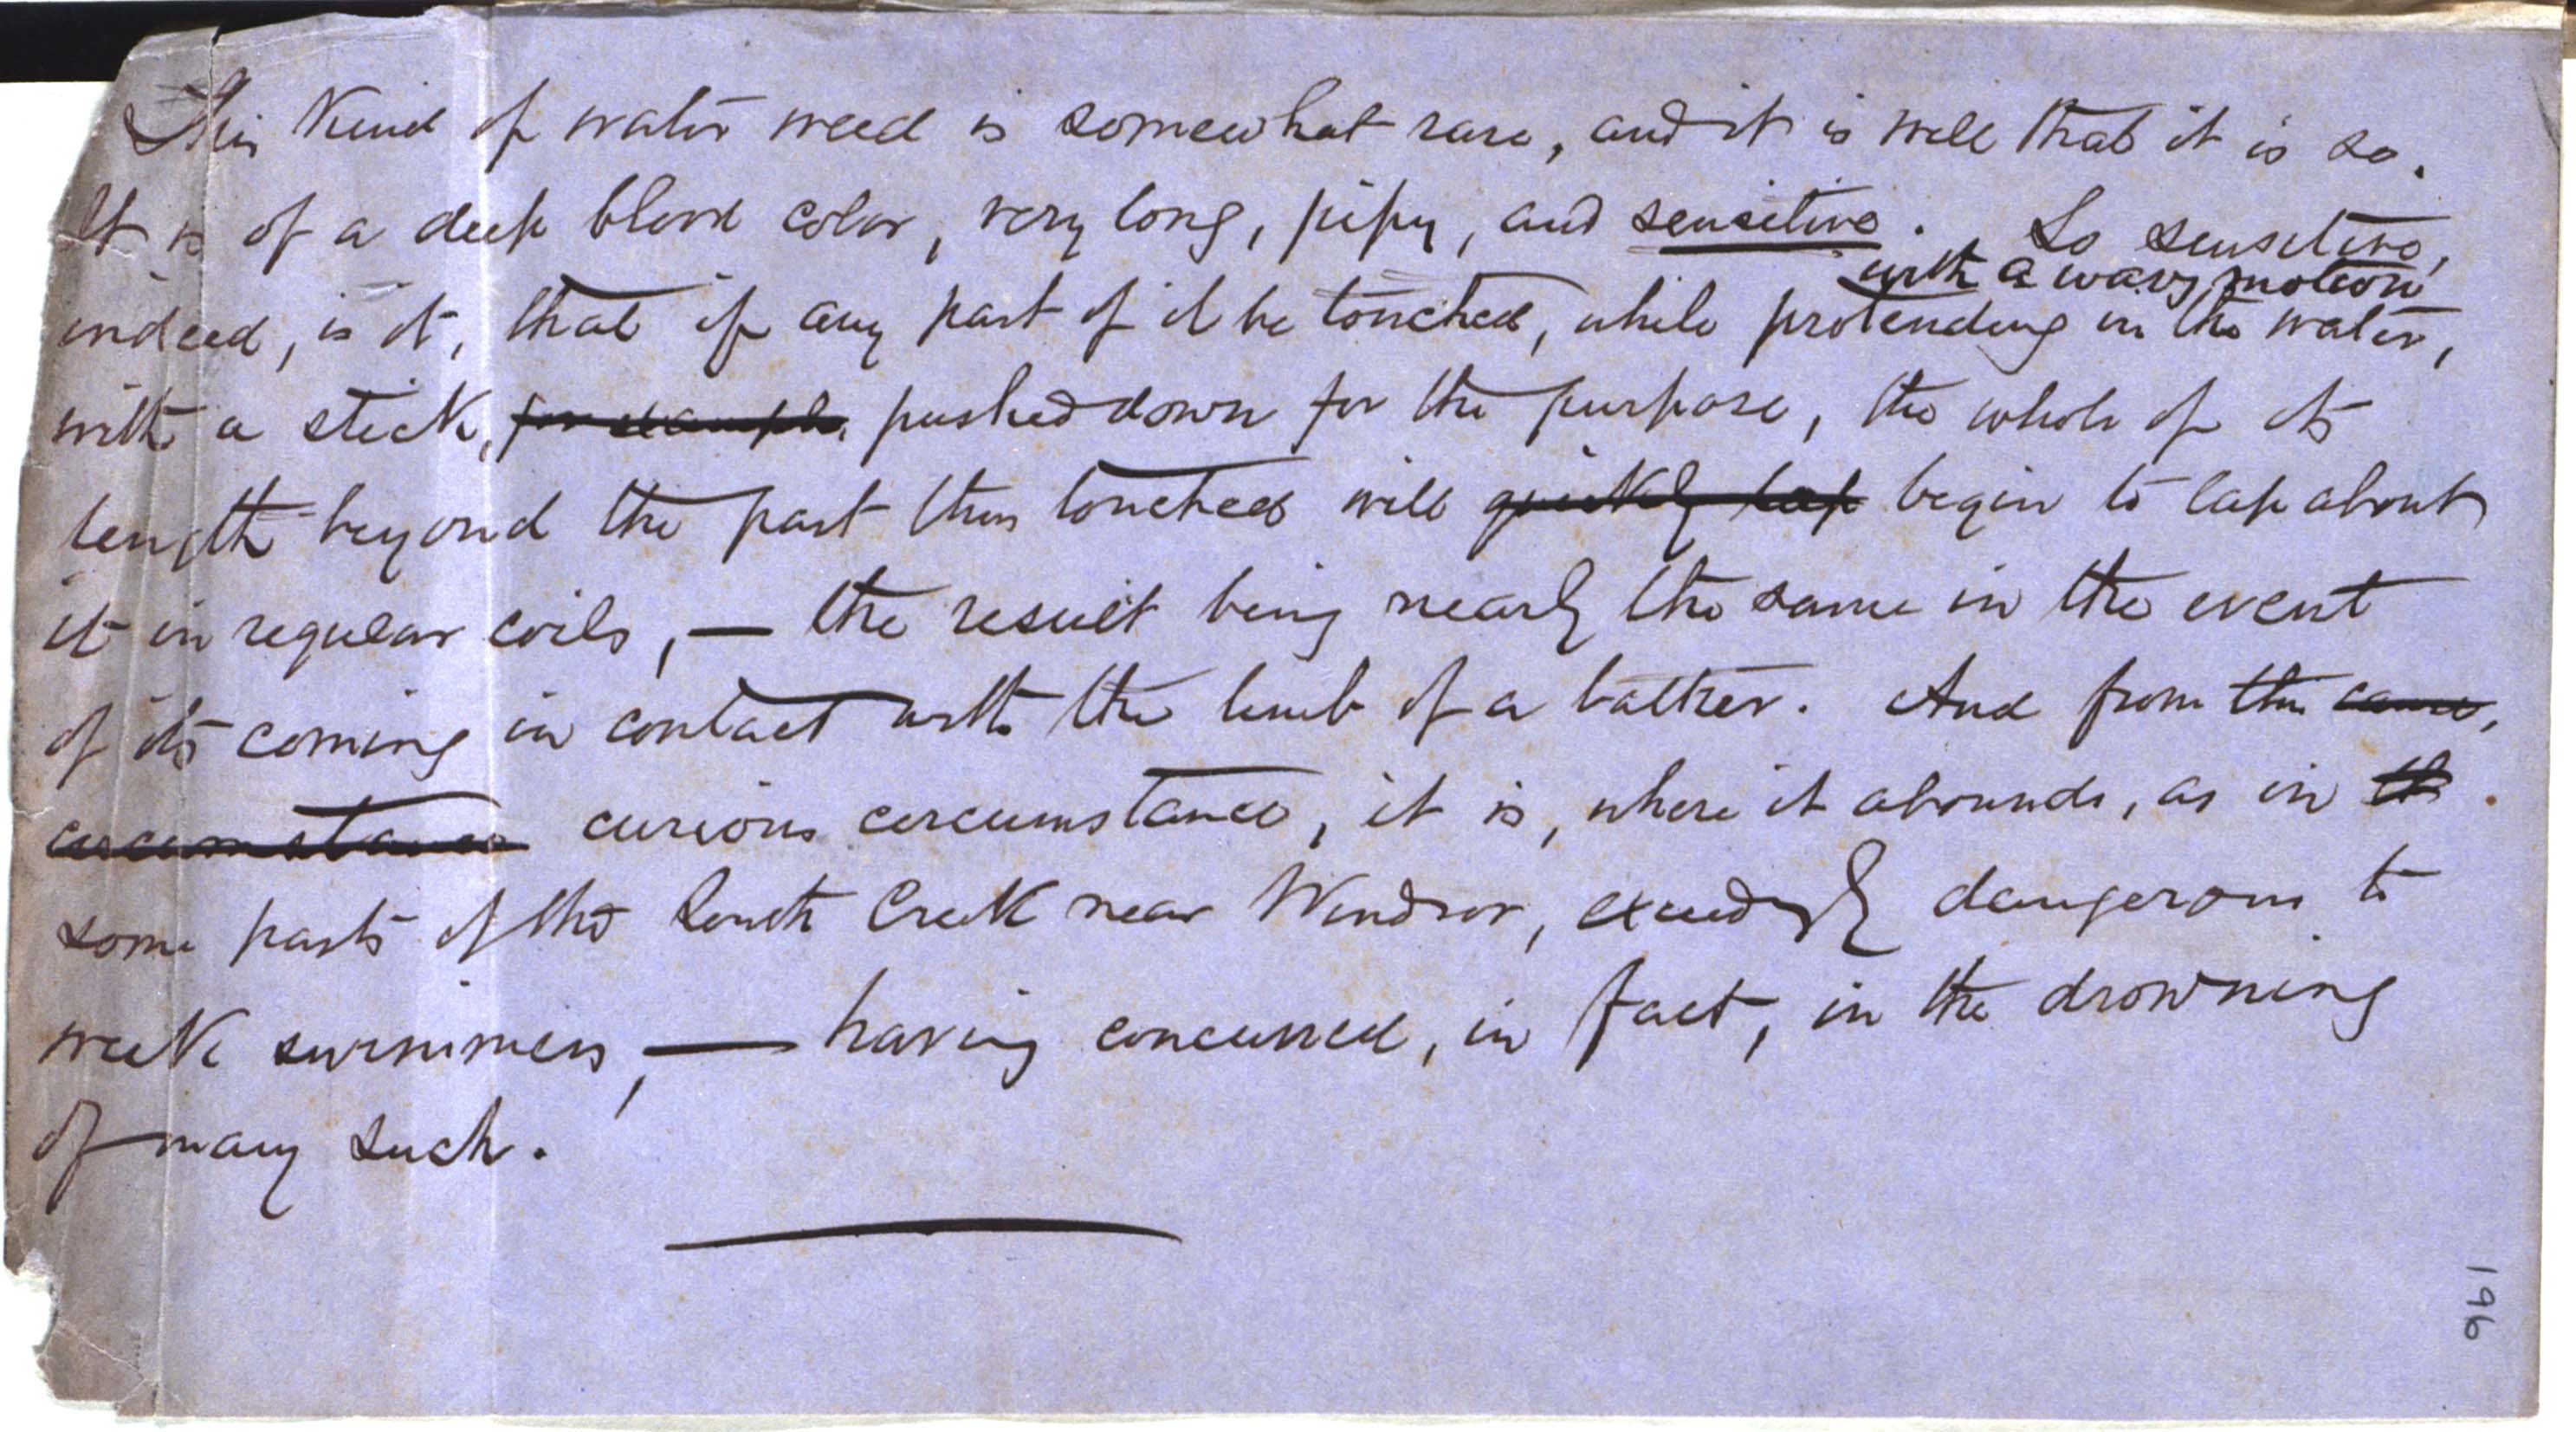 This kind of water weed is somewhat rare, and it is well that it is so.
It is of a deep blood color, very long, pipy, and sensitive. So sensitive,
with a wavy motion
indeed, is it, that if any part of it be touched, while protending in the water,
with a stick, for example, pushed down for the purpose, the whole of its
length beyond the part thus touched will quickly lap begin to lap about
it in regular coils, — the result being nearly the same in the event
of its coming in contact with the limb of a bather. And from this
circumstance curious circumstance, it is, where it abounds, as in th
some parts of the South Creek near Windsor, exceedingly dangerous to
weak swimmers, — having concurred, in fact, in the drowning
of many such.
196